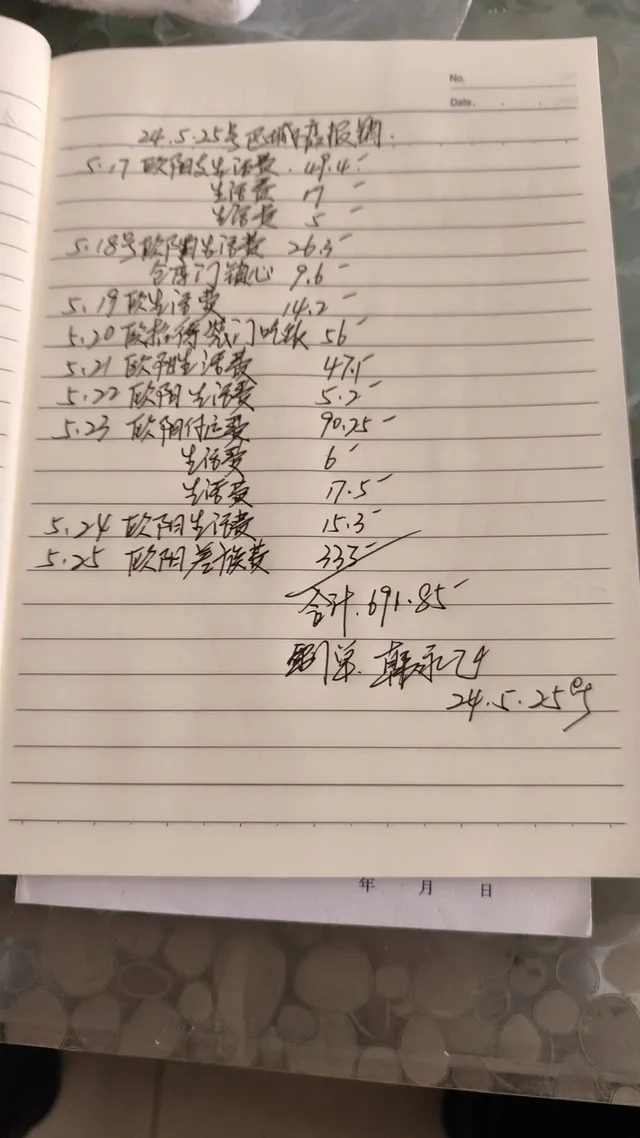 No.
Date.
24.5.25号区域日常报销.
5.17 欧阳支生活费 49.4
生活费 17
生活费 5
5.18号欧阳生活费 26.3
仓库门锁心 9.6
5.19 欧生活费 14.2
5.20 欧招待装门吃饭 56
5.21 欧阳生活费 47.1
5.22 欧阳生活费 5.2
5.23 欧阳付运费 90.25
生活费 6
生活费 17.5
5.24 欧阳生活费 15.3
5.25 欧阳差旅费 333
合计.691.85
24.5.25号
年 月 日